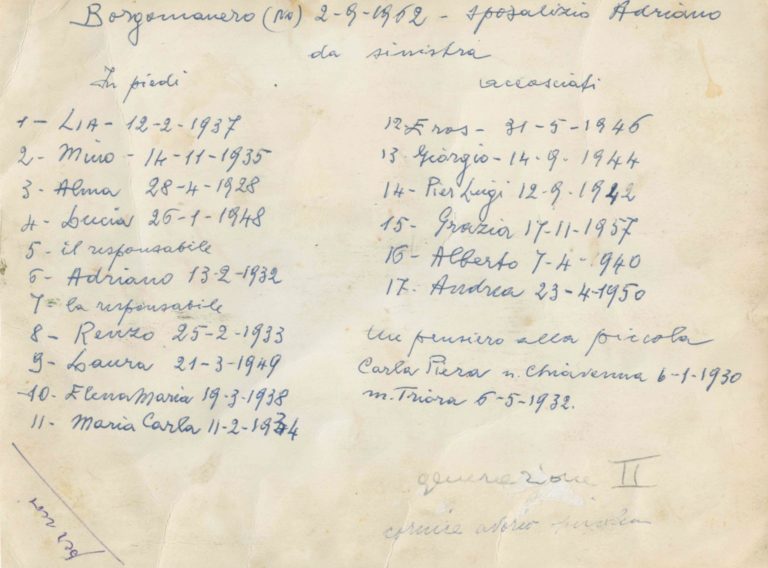 Borgomanero (No) 2-9-1962 - sposalizio Adriano
da sinistra
In piedi
1 - LIA - 12-2-1937
2 - Mino - 14-11-1935
3 - Alma 28-4-1928
4 - Lucia 26-1-1948
5 - il responsabile
6 - Adriano 13-2-1932
7 - la responsabile
8 - Renzo 25-2-1933
9 - Laura 21-3-1949
10 - Elena Maria 19-3-1938
11 - Maria Carla 11-2-1934
accosciati
12 Eros - 31-5-1946
13 - Giorgio - 14-9-1944
14 - Pier Luigi 12-9-1942
15 - Grazia 17-11-1957
16 - Alberto 7-4-940
17 - Andrea 23-4-1950
Un pensiero alla piccola
Carla Piera n. Chiavenna 6-1-1930
m. Triora 6-5-1932.
generazione II
cornice avorio
per noi